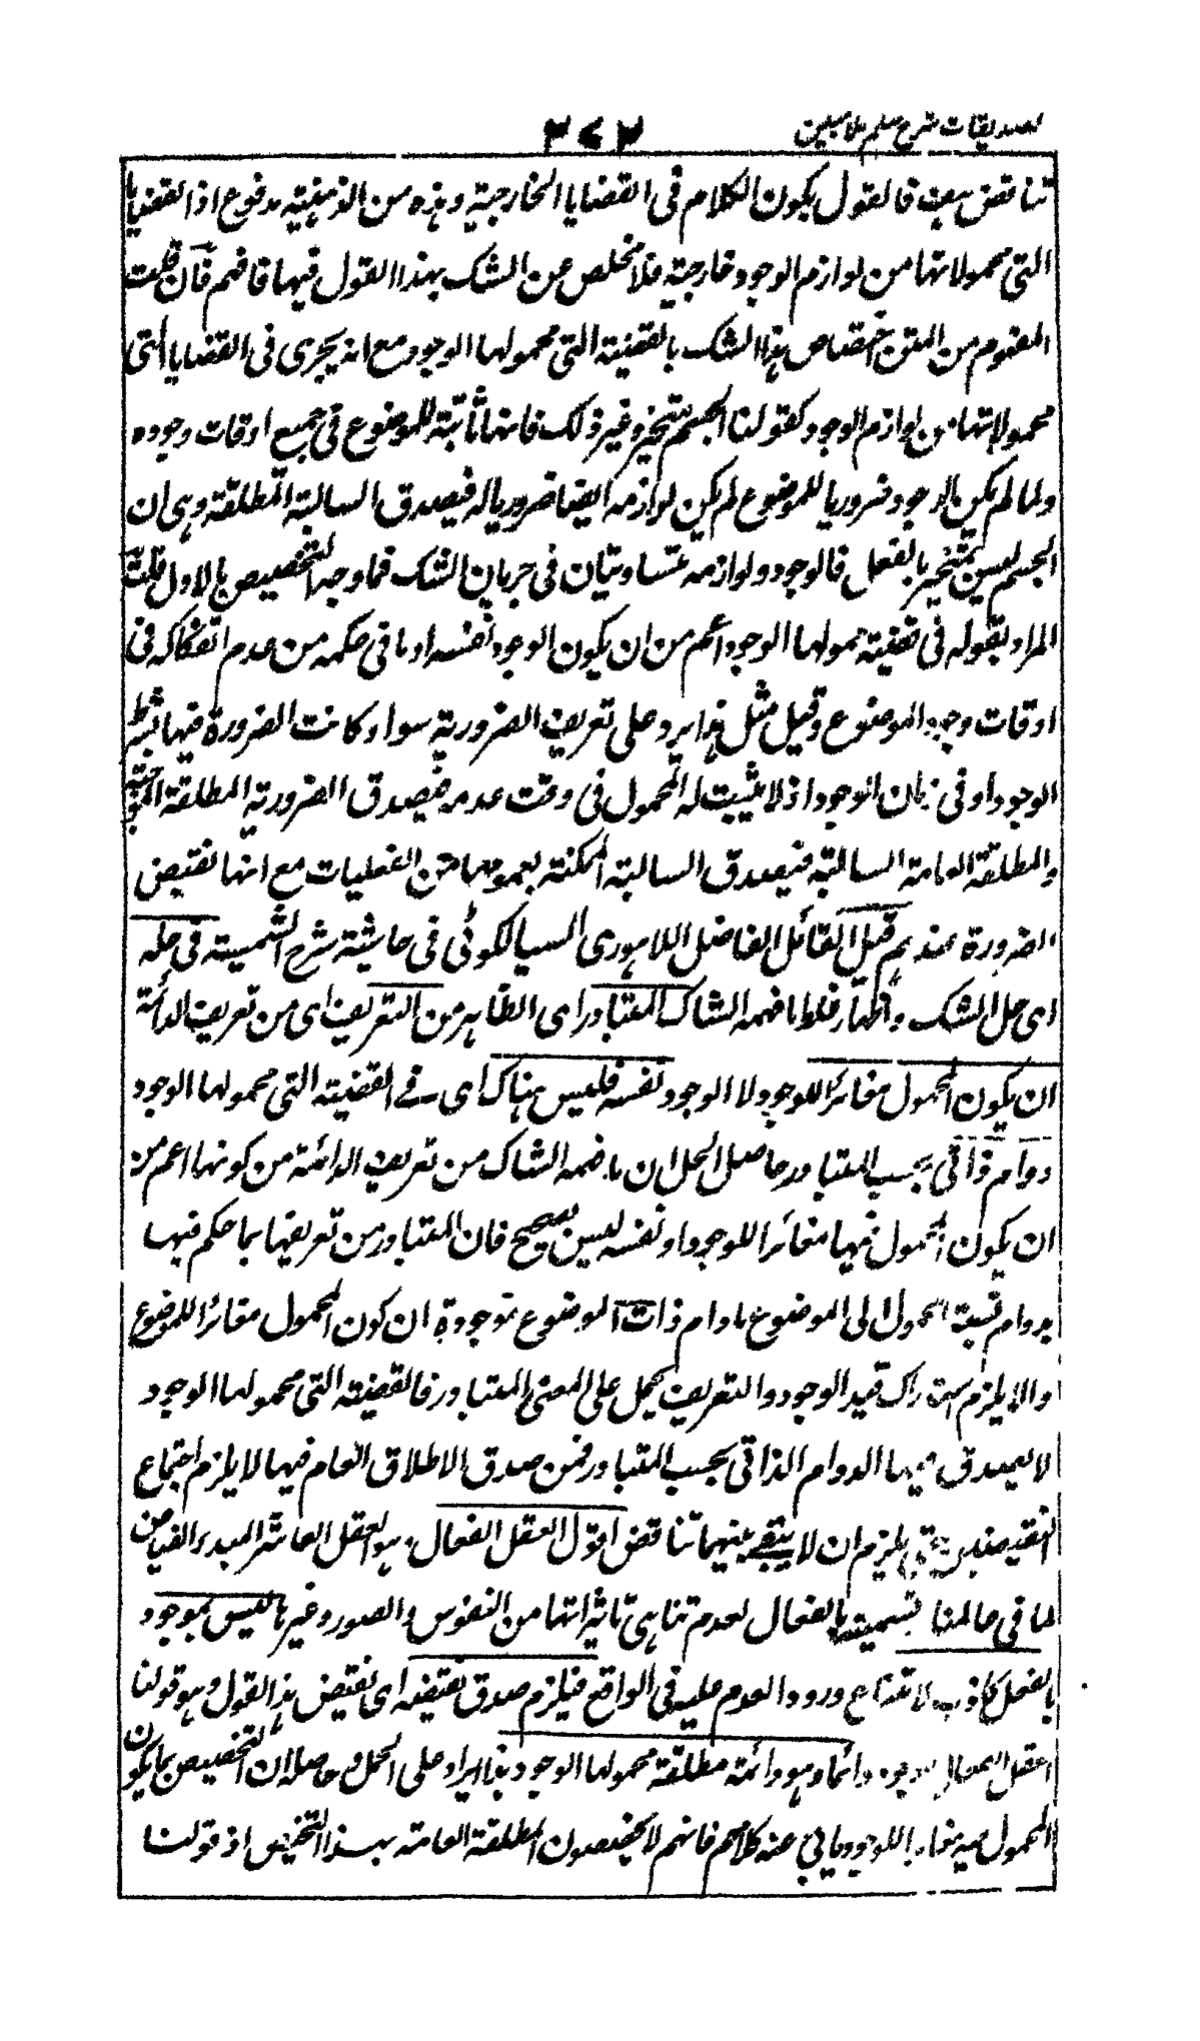 تصديقات شرح سلم ملا مبين
٣٧٢
تناقض بعيد فالقول بكون الكلام فى القضايا الخارجية وهذه من الذهنية مدفوع اذ القضايا
التى محمولاتها من لوازم الوجود خارجية فلا مخلص عن الشك بهذا القول فيها فافهم فان قلت
المفهوم من المتن اختصاص هذا الشك بالقضية التى محمولها الوجود مع انه يجرى فى القضايا التى
محمولاتها من لوازم الوجود كقولنا الجسم متحيز وغير ذلك فانها ثابتة للموضوع فى جميع اوقات وجوده
ولما لم يكن الوجود ضروريا للموضوع لم يكن لوازمه ايضا ضروريا له فيصدق السالبة المطلقة وهى ان
الجسم ليس بمتحيز بالفعل فالوجود ولوازمه متساويتان فى جريان الشك فما وجه التخصيص بالاول قلت
المراد بقوله فى قضية محمولها الوجود اعم من ان يكون الوجود نفسه او ما فى حكمه من عدم انفكاكه فى
اوقات وجود الموضوع وقيل مثل هذا يرد على تعريف الضرورية سواء كانت الضرورة فيها بشرط
الوجود او فى زمان الوجود اذ لا يثبت له المحمول فى وقت عدمه فيصدق الضرورية المطلقة الموجبة
والمطلقة العامة السالبة فيصدق السالبة الممكنة لعمومها من الفعليات مع انها نقيض
الضرورة عندهم قيل القائل الفاضل اللاهورى السيالكوٹى فى حاشية شرح الشمسية فى حله
اى حل الشك واظهار غلط ما فهمه الشاك المتبادر اى الظاهر من التعريف اى من تعريف الدائمة
ان يكون المحمول مغائرا للوجود لا الوجود نفسه فليس هناك اى فى القضية التى محمولها الوجود
دوام ذاتى بحسب المتبادر حاصل الحل ان ما فهمه الشاك من تعريف الدائمة من كونها اعم من
ان يكون المحمول فيها مغائرا للوجود او نفسه ليس بصحيح فان المتبادر من تعريفها بما حكم فيها
بدوام نسبة المحمول الى الموضوع ما دام ذات الموضوع موجودة ان كون المحمول مغائرا للموضوع
والا يلزم استدراك قيد الوجود والتعريف يحمل على المعنى المتبادر فالقضية التى محمولها الوجود
لا يصدق فيها الدوام الذاتى بحسب المتبادر فمن صدق الاطلاق العام فيها لا يلزم اجتماع
النقيضين حتى يلزم ان لا يبقى بينهما تناقض اقول العقل الفعال هو العقل العاشر المبدء الفياض
لما فى عالمنا تسميته بالفعال لعدم تناهى تاثيراتها من النفوس والصور وغيرها ليس بموجود
بالفعل كاذب لامتناع ورود العدم عليه فى الواقع فيلزم صدق نقيضه اى نقيض هذا القول وهو قولنا
العقل الفعال موجود دائما وهو دائمة مطلقة محمولها الوجود هذا ايراد على الحل وحاصله ان التخصيص بما يكون
المحمول فيه مغايرا للوجود يابى عنه كلامهم فانهم لا يخصصون المطلقة العامة بهذا التخصيص اذ قولنا